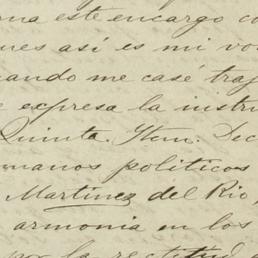 na este encargo co
ues así es mi vo
uando me casé traj
e expresa la instru
Quinta. Item. Dec
manos politicos
Martinez del Rio,
armonia en los
por la rectitud